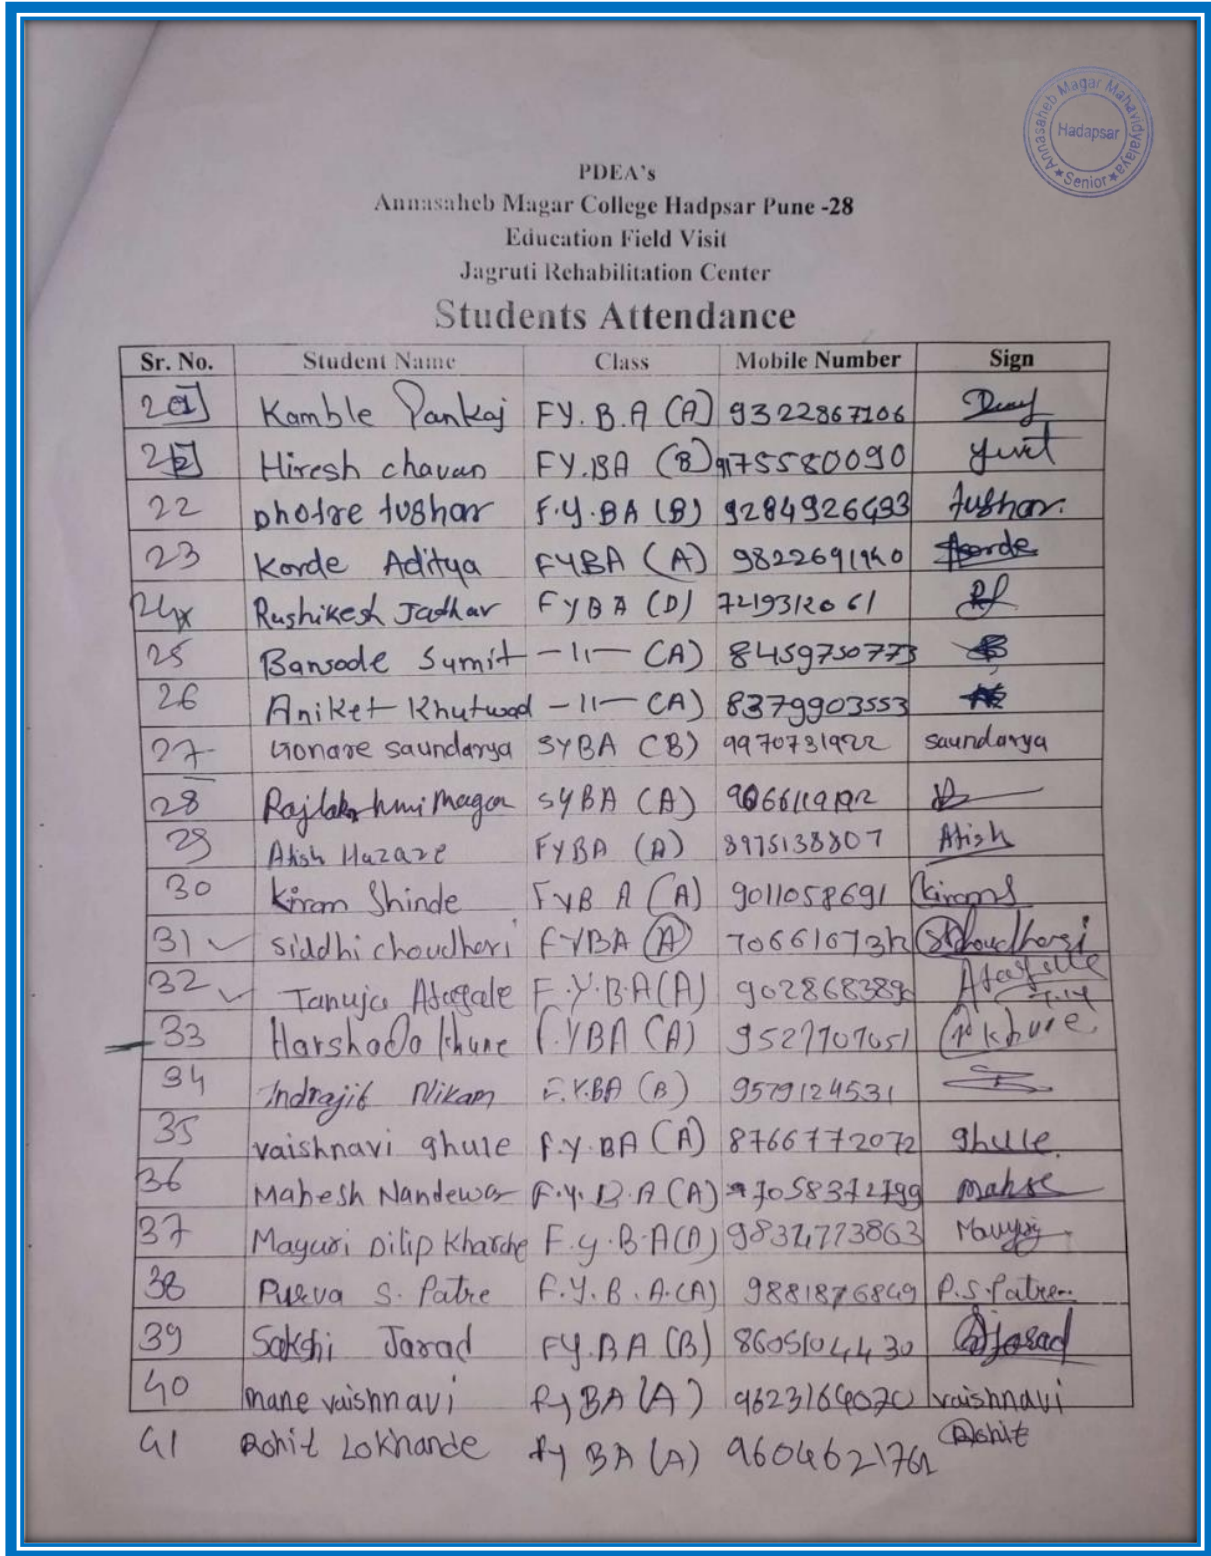 Annasaheb Magar Mahavidyalaya
Hadapsar
★ Senior ★
PDEA's
Annasaheb Magar College Hadpsar Pune -28
Education Field Visit
Jagruti Rehabilitation Center
Students Attendance
Sr. No. Student Name Class Mobile Number Sign
Kamble Pankaj FY.B.A (A) 9322867106
Hiresh chavan FY.BA (B) 9175580090
22 Dhotre tushar F.Y.BA (B) 9284926493 tushar.
23 Korde Aditya FYBA (A) 9822691940 Korde
24 Rushikesh Jadhav FYBA (D) 7219312061
25 Bansode Sumit -11- (A) 8459730773
26 Aniket Khutwad -11- (A) 8379903553
27 Gonare saundarya SYBA (B) 9970731922 saundarya
28 Rajlakshmi Magar SYBA (A)
29 Atish Hazare FYBA (A) 8975138807 Atish
30 Kiran Shinde FYBA (A) 9011058691 KiranS
31 siddhi choudhari FYBA (A) SChoudhari
32 Tanuja Atagale F.Y.B.A(A) 9028683890
33 Harshada khune F.YBA (A) 9527707051
34 Indrajit Nikam F.Y.BA (B) 9579124531
35 vaishnavi ghule F.Y.BA (A) 8766772072 ghule.
36 Mahesh Nandewar F.Y.B.A (A) 7058372799
37 Mayuri Dilip Kharche F.y.B.A(A)
38 Purva S. Patre F.Y.B.A.(A) 9881876849 P.S.Patre
39 Sakshi Jarad FY.BA (B) 8605104430 SJarad
40 mane vaishnavi Fy BA (A) 9623164070 vaishnavi
41 Rohit Lokhande fy BA (A) 9604621762 Rohit